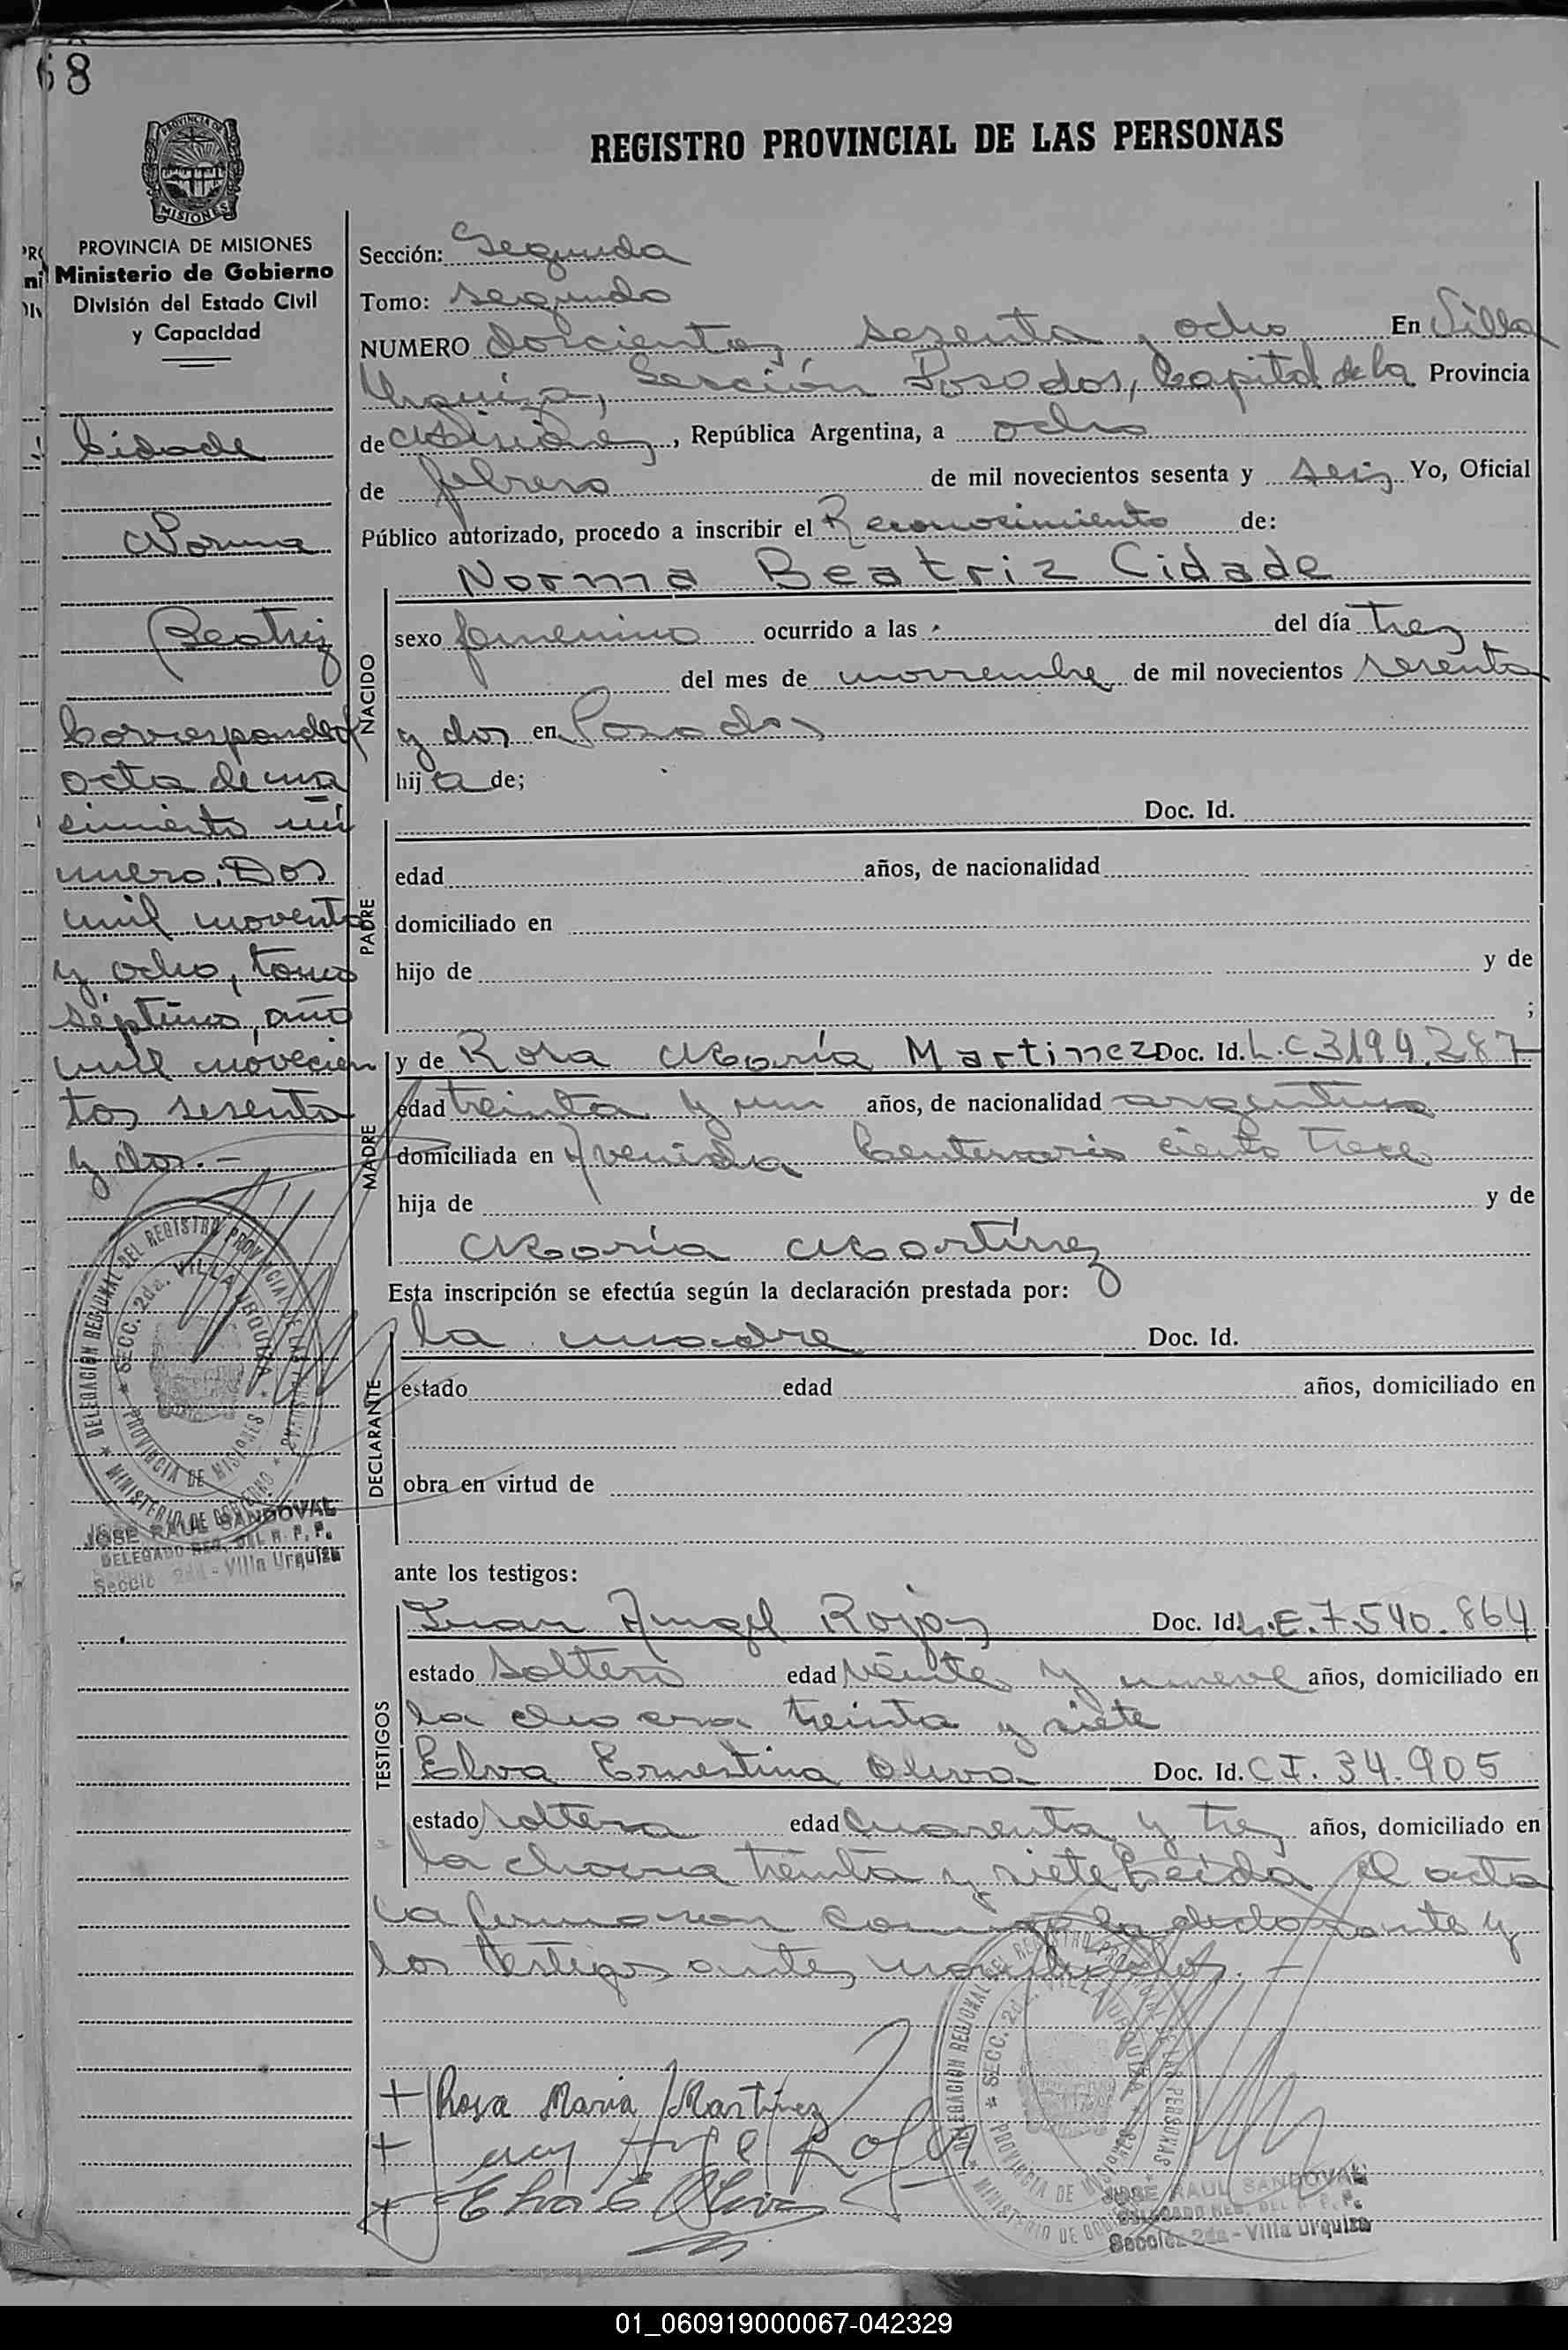 68
REGISTRO PROVINCIAL DE LAS PERSONAS
PROVINCIA DE MISIONES
PROVINCIA DE MISIONES
Ministerio de Gobierno
División del Estado Civil
y Capacidad
Cidade
Norma
Beatriz
Corresponde
acta de na
cimiento nú
mero: Dos
mil noventa
y ocho, tomo
séptimo, año
mil novecien
tos sesenta
y dos.-
DELEGACIÓN REGIONAL DEL REGISTRO PROVINCIAL DE LAS PERSONAS
SECC. 2da. VILLA URQUIZA
PROVINCIA DE MISIONES
MINISTERIO DE GOBIERNO
JOSE RAUL SANDOVAL
DELEGADO REG. DEL R. P. P.
Sección 2da - Villa Urquiza
Sección: Segunda
Tomo: segundo
NUMERO doscientos sesenta y ocho En Villa
Urquiza, Sección Posadas, Capital de la Provincia
de Misiones, República Argentina, a ocho
de febrero de mil novecientos sesenta y seis Yo, Oficial
Público autorizado, procedo a inscribir el Reconocimiento de:
Norma Beatriz Cidade
NACIDO
sexo femenino ocurrido a las del día tres
del mes de noviembre de mil novecientos sesenta
y dos en Posadas
hija de;
PADRE
Doc. Id.
edad años, de nacionalidad
domiciliado en
hijo de y de
;
MADRE
y de Rosa María Martinez Doc. Id. L.C 3194.287
edad treinta y un años, de nacionalidad argentina
domiciliada en Avenida Centenario ciento trece
hija de y de
María Martínez
Esta inscripción se efectúa según la declaración prestada por:
DECLARANTE
la madre Doc. Id.
estado edad años, domiciliado en
obra en virtud de
ante los testigos:
TESTIGOS
Juan Angel Rojas Doc. Id. L.E. 7.540.864
estado soltero edad veinte y nueve años, domiciliado en
la chacra treinta y siete
Elva Ernestina Oliva Doc. Id. C I. 34.905
estado soltera edad cuarenta y tres años, domiciliado en
la chacra treinta y siete Leída el acta
la firmaron conmigo la declarante y
los testigos antes
+ Rosa Maria Martínez
+ Juan Angel Rojas
+ Elva E Oliva
DELEGACIÓN REGIONAL DEL REGISTRO PROVINCIAL DE LAS PERSONAS
SECC. 2da. VILLA URQUIZA
PROVINCIA DE MISIONES
MINISTERIO DE GOBIERNO
JOSE RAUL SANDOVAL
DELEGADO REG. DEL R. P. P.
Sección 2da - Villa Urquiza
01_060919000067-042329